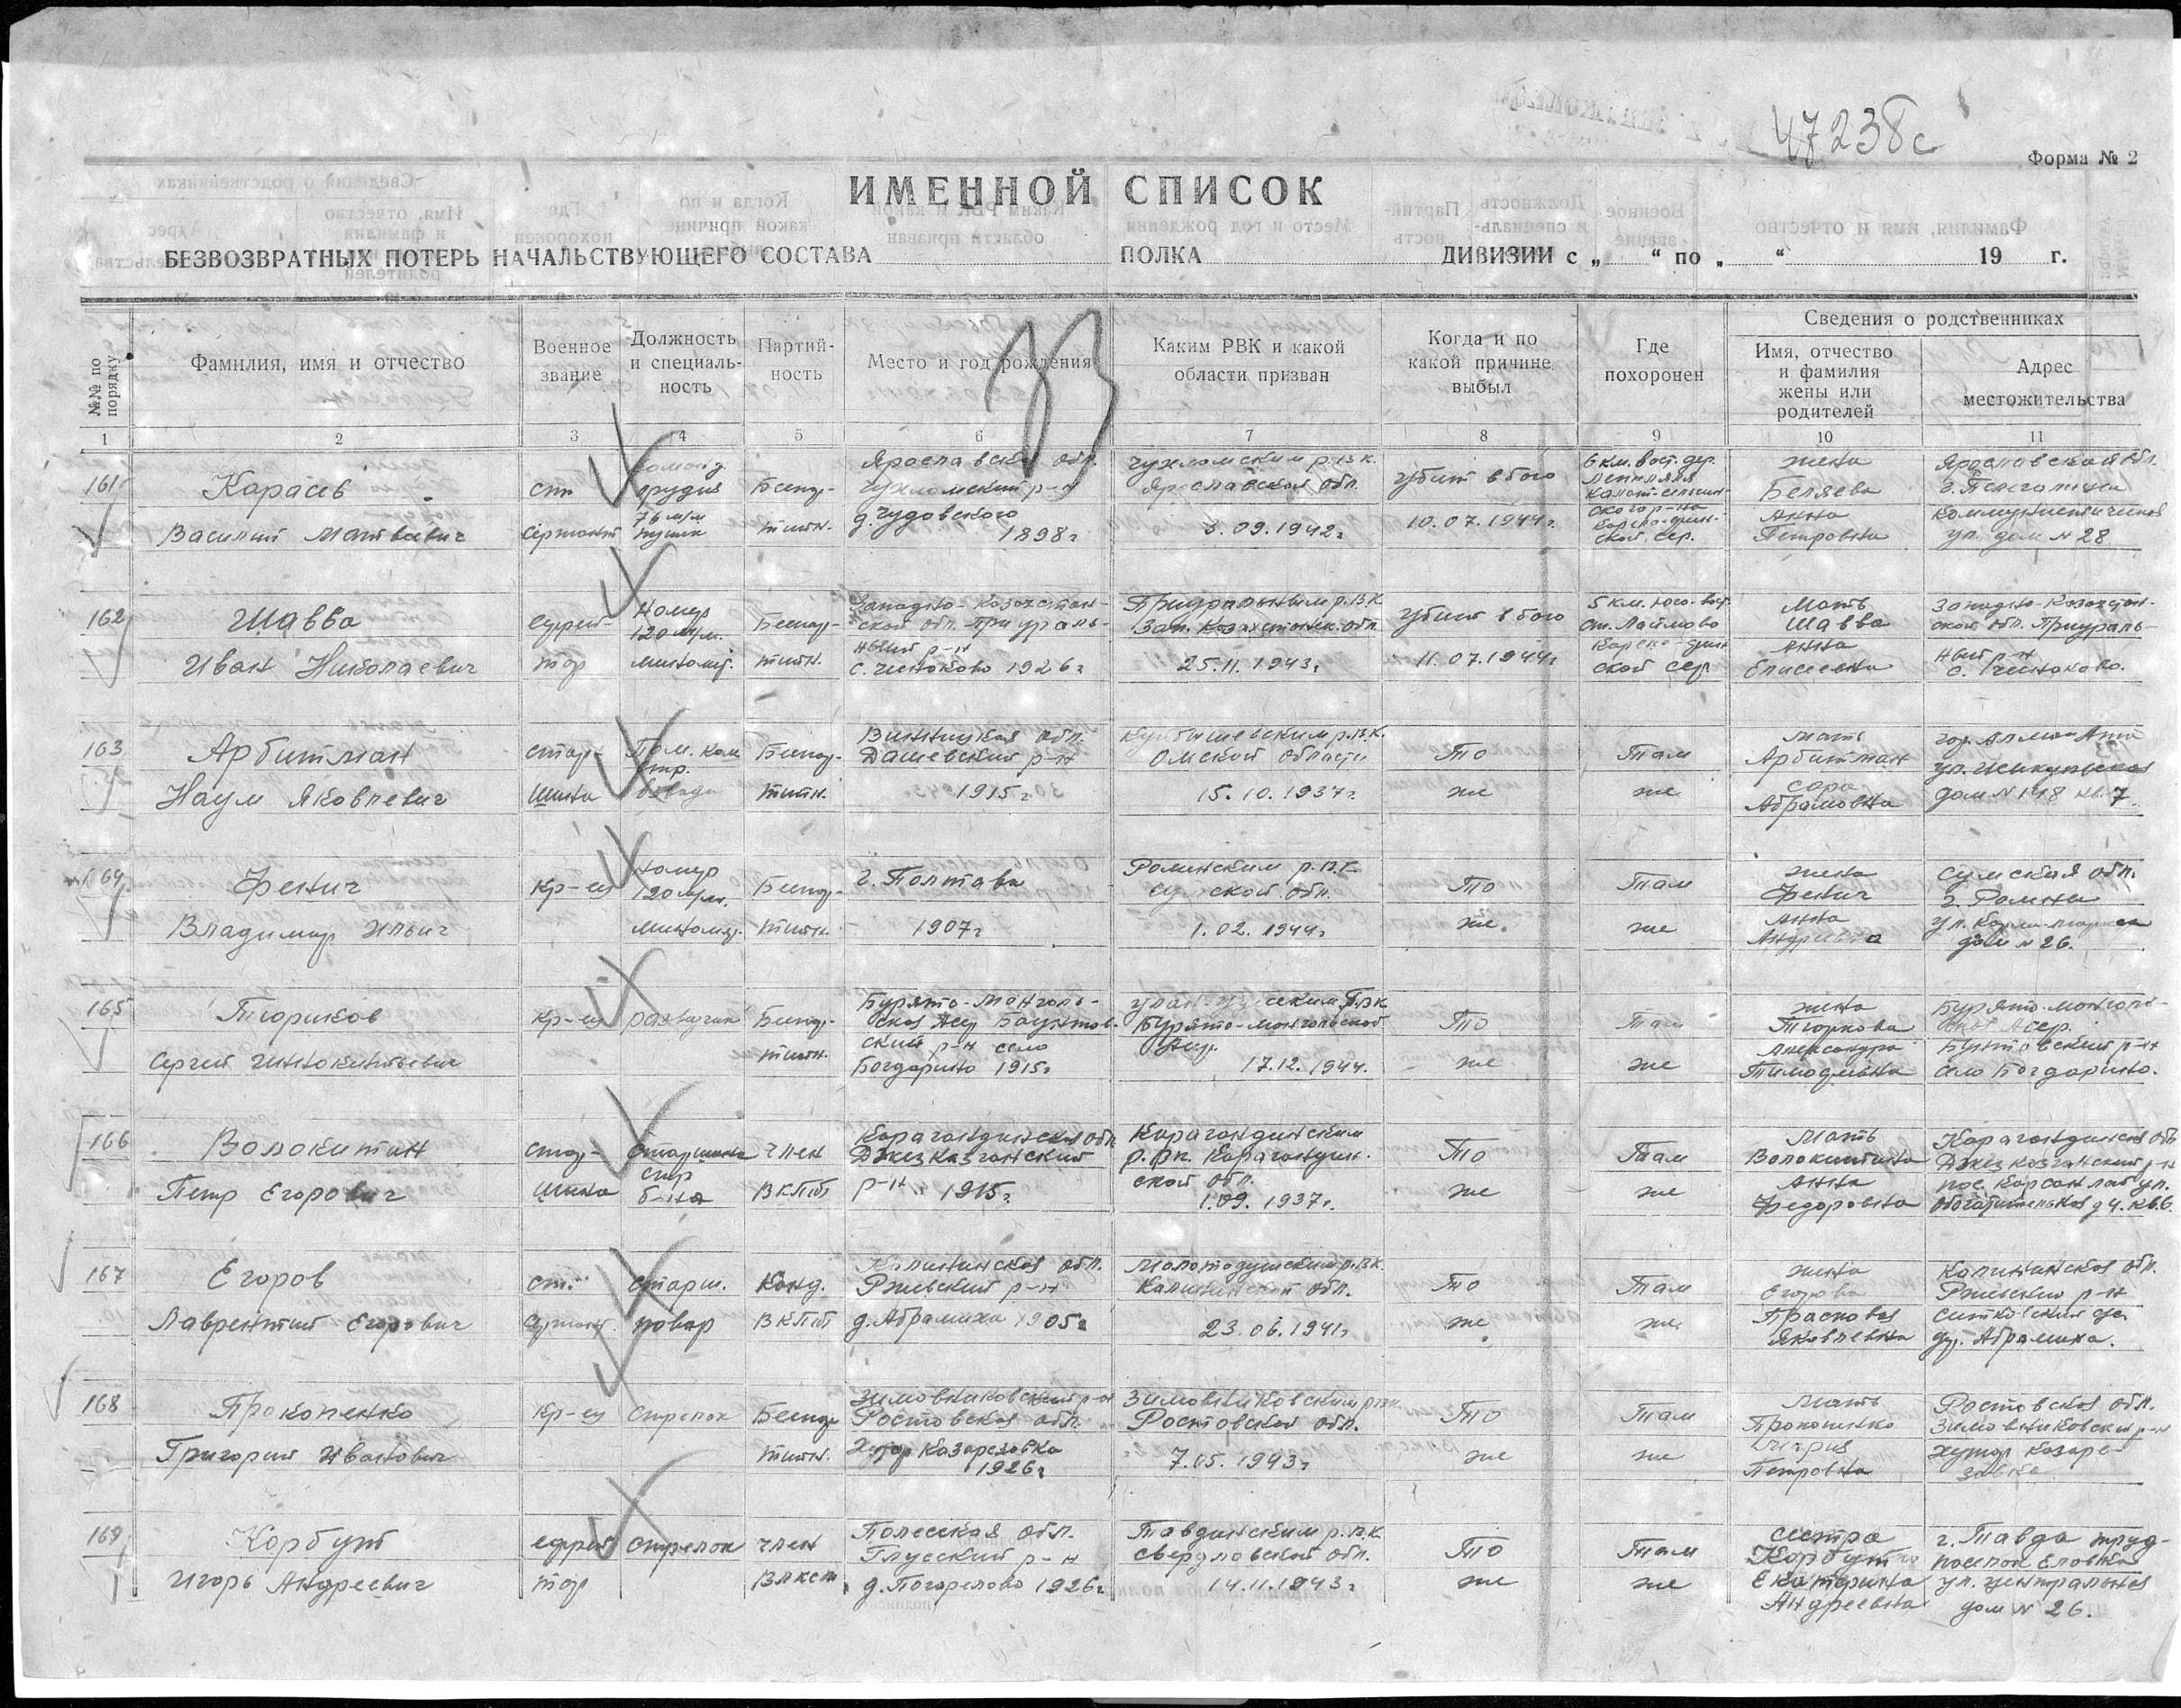 47238с
Форма № 2
ИМЕННОЙ СПИСОК
БЕЗВОЗВРАТНЫХ ПОТЕРЬ НАЧАЛЬСТВУЮЩЕГО СОСТАВА ПОЛКА ДИВИЗИИ с „ “ по „ “ 19 г.
№№ по порядку
Фамилия, имя и отчество
Военное звание
Должность и специальность
Партийность
Место и год рождения
Каким РВК и какой области призван
Когда и по какой причине выбыл
Где похоронен
Сведения о родственниках
Имя, отчество и фамилия жены или родителей
Адрес местожительства
33
1 2 3 4 5 6 7 8 9 10 11
161
Карасев
Василий Матвеевич
Ст
Сержант
орудия
76 м/м
пушки
Беспар-
тийн.
Ярославская обл.
Чухломский р-н
д. Чудовского
1898 г
Чухломским р.в.к.
Ярославской обл.
3.09.1942 г
Убит в бою
10.07.1944 г.
6 км. вост. дер.
ской сер.
жена
Беляева
Анна
Петровна
Ярославская обл.
Коммунистическая
ул. дом н 28
162
Шавва
Иван Николаевич
Ефрей-
тор
Номер
120 м/м.
миномет.
Беспар-
тийн.
Западно-Казахстан-
ской обл. Приураль-
ный р-н
с. Чинаково 1926 г
Приуральным р.в.к
Зап. Казахстанск. обл.
25.11.1943 г
Убит в бою
11.07.1944 г
5 км. юго-вос.
ст. Лаймово
Карело-фин
ской сер.
Мать
Шавва
Анна
Елисеевна
Западно-Казахстан-
ской обл. Приураль-
ный р-н
с. Чинаково.
163
Арбитман
Наум Яковлевич
стар-
шина
Пом. ком
стр.
взвода
Беспар-
тийн.
Винницкая обл.
Дашевский р-н
1915 г
Куйбышевским р.в.к.
Омской области
15.10.1937 г.
То
же
Там
же
мать
Арбитман
Сара
Абрамовна
гор. Алма-Ата
дом N 118 кв. 7.
164
Фенич
Владимир Ильич
Кр-ец
Номер
120 м/м.
миномет.
Беспар-
тийн.
г. Полтава
1907 г
Роменским р.в.к.
Сумской обл.
1.02.1944 г
То
же.
Там
же
жена
Фенич
Анна
Андреевна
Сумская обл.
г. Ромны
ул. Карла-маркса
дом н 26.
165
Тюриков
Сергей Иннокентьевич
Кр-ец
разведчик
Беспар-
тийн.
Бурято-Монголь-
ская Асср Баунтов-
ский р-н село
Богдарино 1915 г
Бурято-монгольской
Асср.
17.12.1944.
То
же
Там
же
жена
Александра
Тимофеевна
Бурято-монголь-
ская Асср.
село Богдарино.
166
Волокитин
Петр Егорович
стар-
шина
Старшина
стр
б-на
член
ВКПб
Карагандинская обл
Джезказганский
р-н 1915 г.
Карагандинским
р.вк. Карагандин.
ской обл.
1.09.1937 г.
То
же
Там
же
Мать
Волокитина
Анна
Федоровна
Карагандинская обл
Джезказганский р-н
пос. Карсакпай ул.
Обогатительная д 4. кв. 6.
167
Егоров
Лаврентий Егорович
ст.
Сержант.
старш.
повар
Канд.
ВКПб
Калининская обл.
Ржевский р-н
д. Абрамиха 1905 г
Молотодушским р.в.к.
Калининской обл.
23.06.1941 г
То
же
Там
же.
жена
Егорова
Прасковья
Яковлевна
Калининская обл.
Ржевский р-н
дер. Абрамиха.
168
Прокопенко
Григорий Иванович
Кр-ец
Стрелок
Беспар
тийн.
Зимовниковский р-н
Ростовская обл.
Хутор Казарезовка
1926 г
Зимовниковским рвк.
Ростовской обл.
7.05.1943 г
То
же
Там
же
Мать
Прокопенко
Мария
Петровна
Ростовская обл.
Зимовниковский р-н
хутор Казаре-
зовка
169
Корбут
Игорь Андреевич
ефрей
тор
Стрелок
член
ВЛКСМ
Полесская обл.
Глусский р-н
д. Погорелово 1926 г
Тавдинским р.в.к.
Свердловской обл.
14.11.1943 г
То
же
Там
же
сестра
Корбут
Екатерина
Андреевна
г. Тавда труд-
поселок Еловка
ул. центральная
дом N 26.